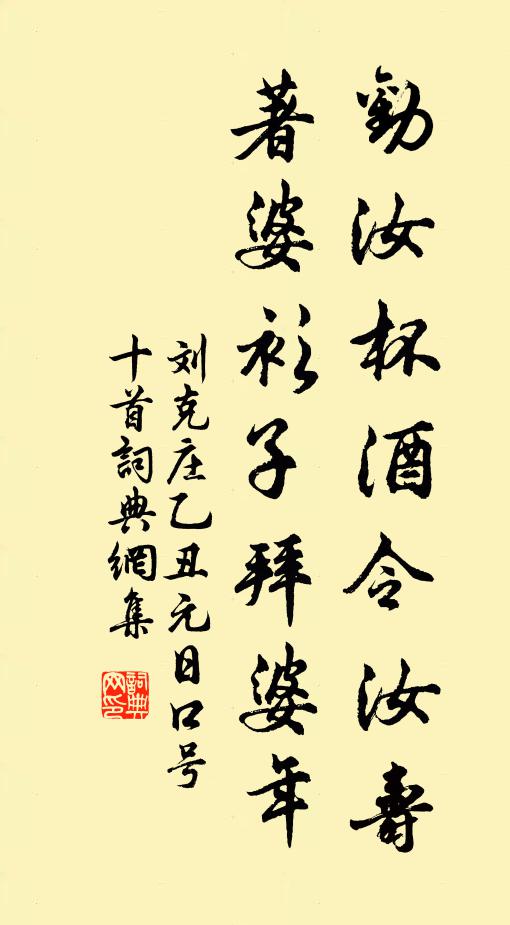 勸汝杯酒令汝壽
著婆衫子拜婆年
刘克庄乙丑元日口号
十首詞典網集
詞典网印